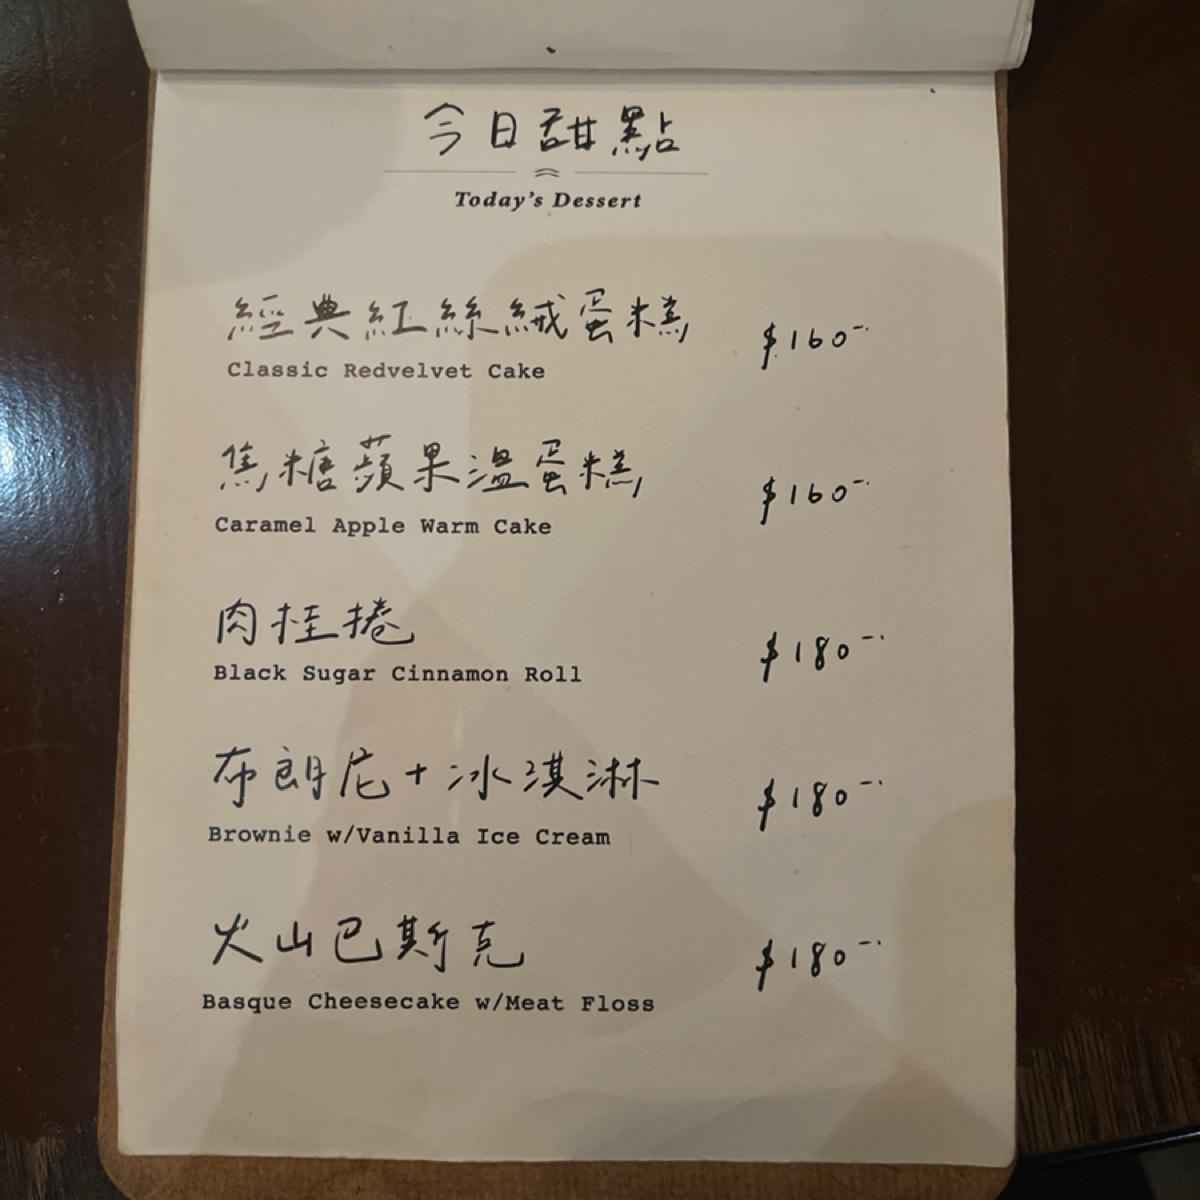 今日甜點
Today's Dessert
經典紅絲絨蛋糕 $160-
Classic Redvelvet Cake
焦糖蘋果溫蛋糕 $160-
Caramel Apple Warm Cake
肉桂捲 $180-
Black Sugar Cinnamon Roll
布朗尼+冰淇淋 $180-
Brownie w/Vanilla Ice Cream
火山巴斯克 $180-
Basque Cheesecake w/Meat Floss